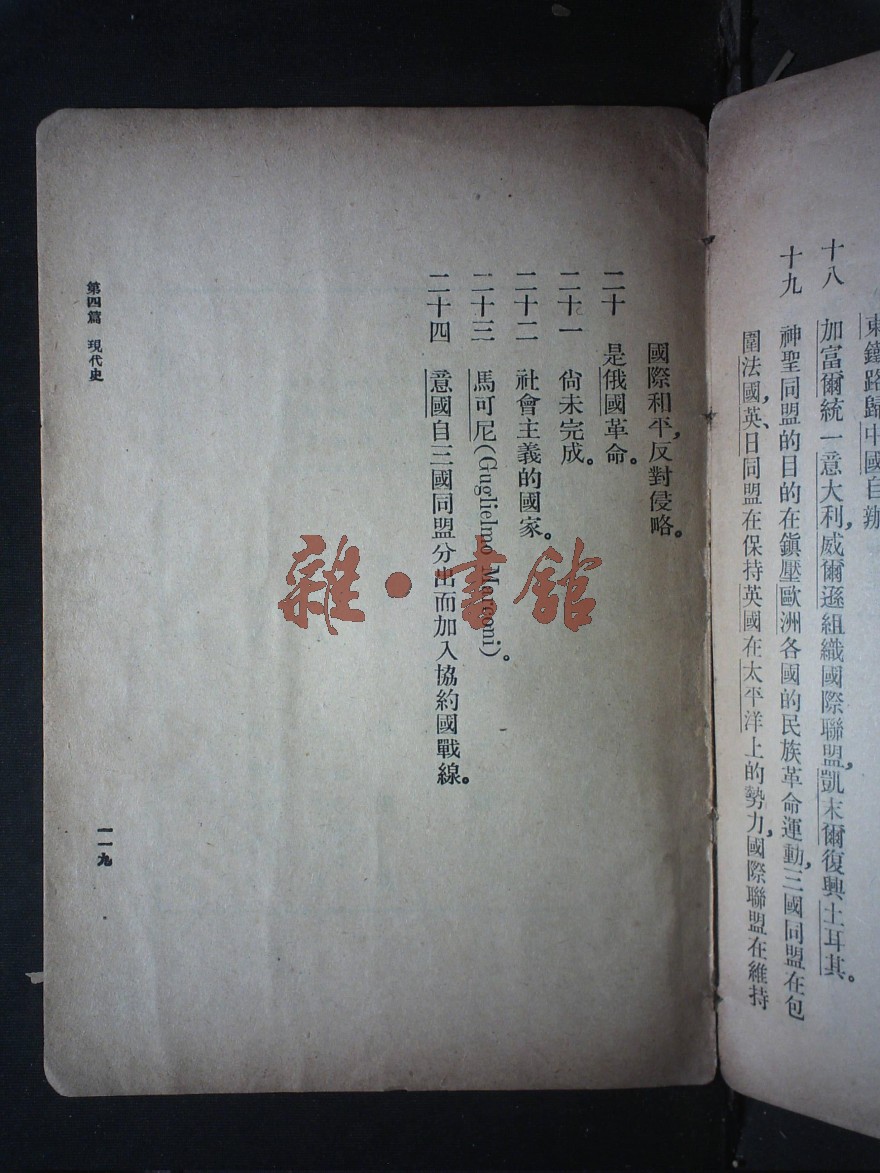 東鐵路歸中國自辦
十八 加富爾統一意大利,威爾遜組織國際聯盟,凱末爾復興土耳其。
十九 神聖同盟的目的在鎮壓歐洲各國的民族革命運動,三國同盟在包
圍法國,英、日同盟在保持英國在太平洋上的勢力,國際聯盟在維持
國際和平,反對侵略。
二十 是俄國革命。
二十一 尙未完成。
二十二 社會主義的國家。
二十三 馬可尼(Guglielmo Marconi)。
二十四 意國自三國同盟分出而加入協約國戰線。
第四篇 現代史
一一九
雜·書館